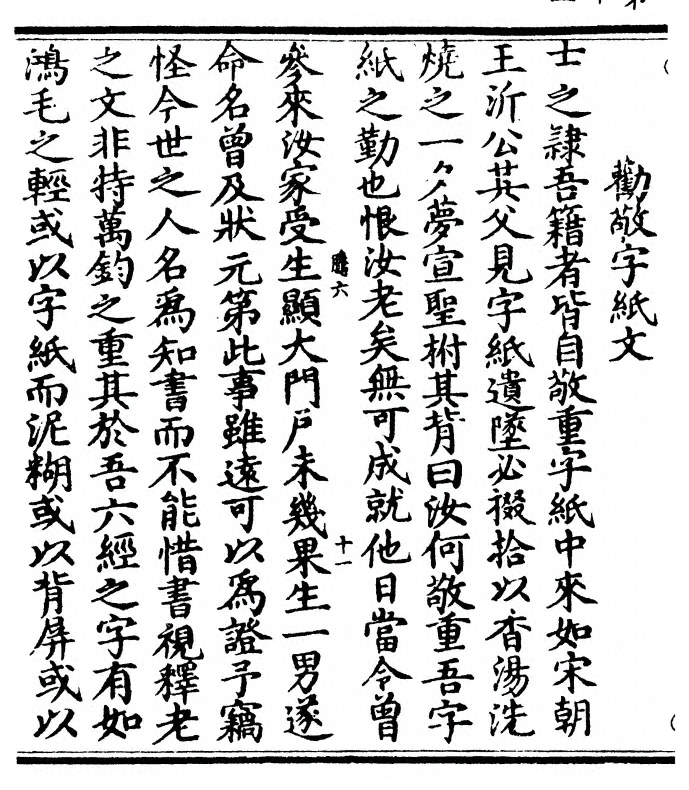 勸敬字紙文
士之隸吾籍者皆自敬重字紙中來如宋朝
王沂公其父見字紙遺墜必掇拾以香湯洗
燒之一夕夢宣聖拊其背曰汝何敬重吾字
紙之勤也恨汝老矣無可成就他日當令曾
參來汝家受生顯大門戶未幾果生一男遂
騰六
十一
命名曾及狀元第此事雖遠可以為證予竊
怪今世之人名為知書而不能惜書視釋老
之文非特萬鈞之重其於吾六經之字有如
鴻毛之輕或以字紙而泥糊或以背屏或以